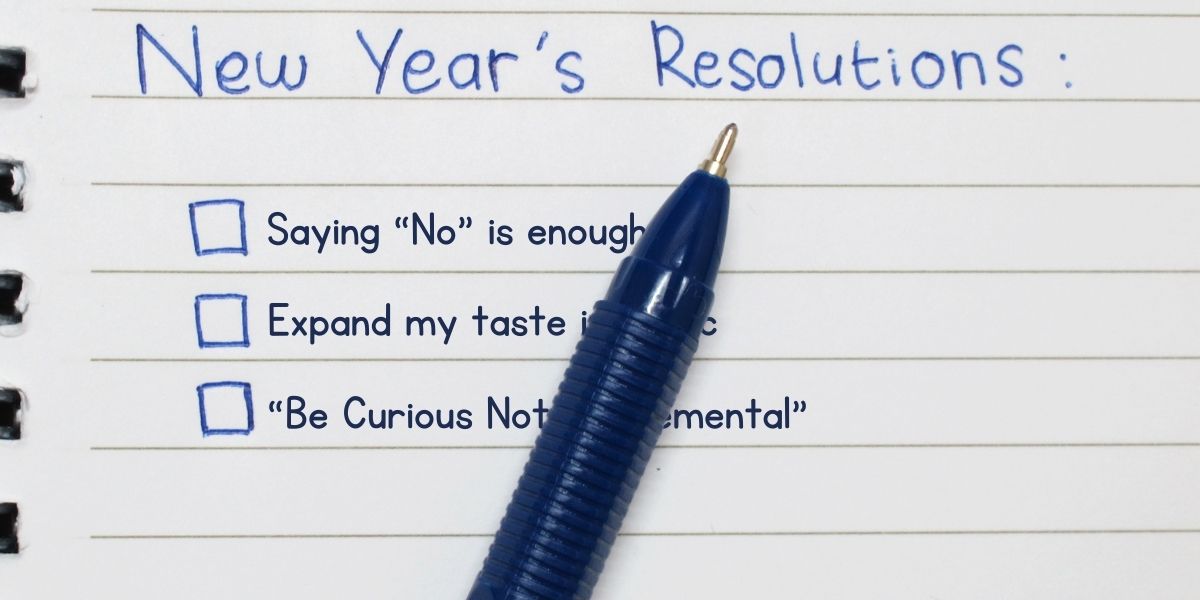 New Year's Resolutions :
Saying “No” is enough
Expand my taste
“Be Curious Not